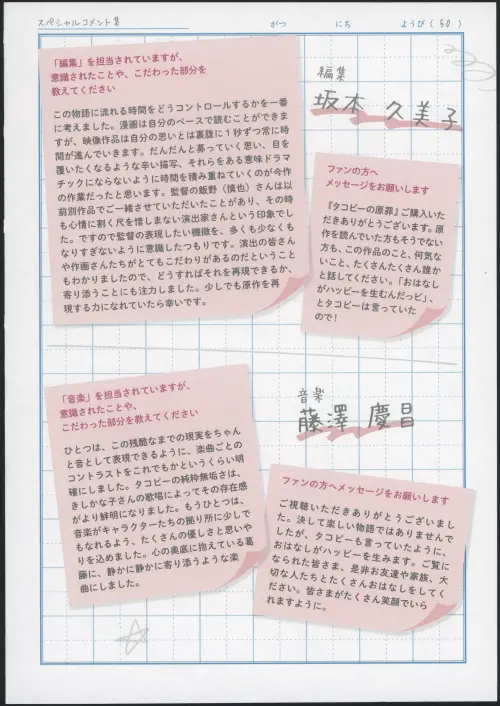 スペシャルコメント集
がつ にち ようび(50)
「編集」を担当されていますが、
意識されたことや、こだわった部分を
教えてください
この物語に流れる時間をどうコントロールするかを一番
に考えました。漫画は自分のペースで読むことができま
すが、映像作品は自分の思いとは裏腹に1秒ずつ常に時
間が進んでいきます。だんだんと募っていく思い、目を
覆いたくなるような辛い描写、それらをある意味ドラマ
チックにならないように時間を積み重ねていくのが今作
の作業だったと思います。監督の飯野(慎也)さんは以
前別作品でご一緒させていただいたことがあり、その時
も心情に割く尺を惜しまない演出家さんという印象でし
た。ですので監督の表現したい機微を、多くも少なくも
なりすぎないように意識したつもりです。演出の皆さん
や作画さんたちがとてもこだわりがあるのだということ
もわかりましたので、どうすればそれを再現できるか、
寄り添うことにも注力しました。少しでも原作を再
現する力になれていたら幸いです。
編集
坂本 久美子
ファンの方へ
メッセージをお願いします
『タコピーの原罪』ご購入いた
だきありがとうございます。原
作を読んでいた方もそうでない
方も、この作品のこと、何気な
いこと、たくさんたくさん誰か
と話してください。「おはなし
がハッピーを生むんだっピ」、
とタコピーは言っていた
ので!
「音楽」を担当されていますが、
意識されたことや、
こだわった部分を教えてください
ひとつは、この残酷なまでの現実をちゃん
と音として表現できるように、楽曲ごとの
コントラストをこれでもかというくらい明
確にしました。タコピーの純粋無垢さは、
きしかな子さんの歌唱によってその存在感
がより鮮明になりました。もうひとつは、
音楽がキャラクターたちの拠り所に少しで
もなれるよう、たくさんの優しさと思いや
りを込めました。心の奥底に抱えている葛
藤に、静かに静かに寄り添うような楽
曲にしました。
音楽
藤澤 慶昌
ファンの方へメッセージをお願いします
ご視聴いただきありがとうございまし
た。決して楽しい物語ではありませんで
したが、タコピーも言っていたように、
おはなしがハッピーを生みます。ご覧に
なられた皆さま、是非お友達や家族、大
切な人たちとたくさんおはなしをしてく
ださい。皆さまがたくさん笑顔でいら
れますように。